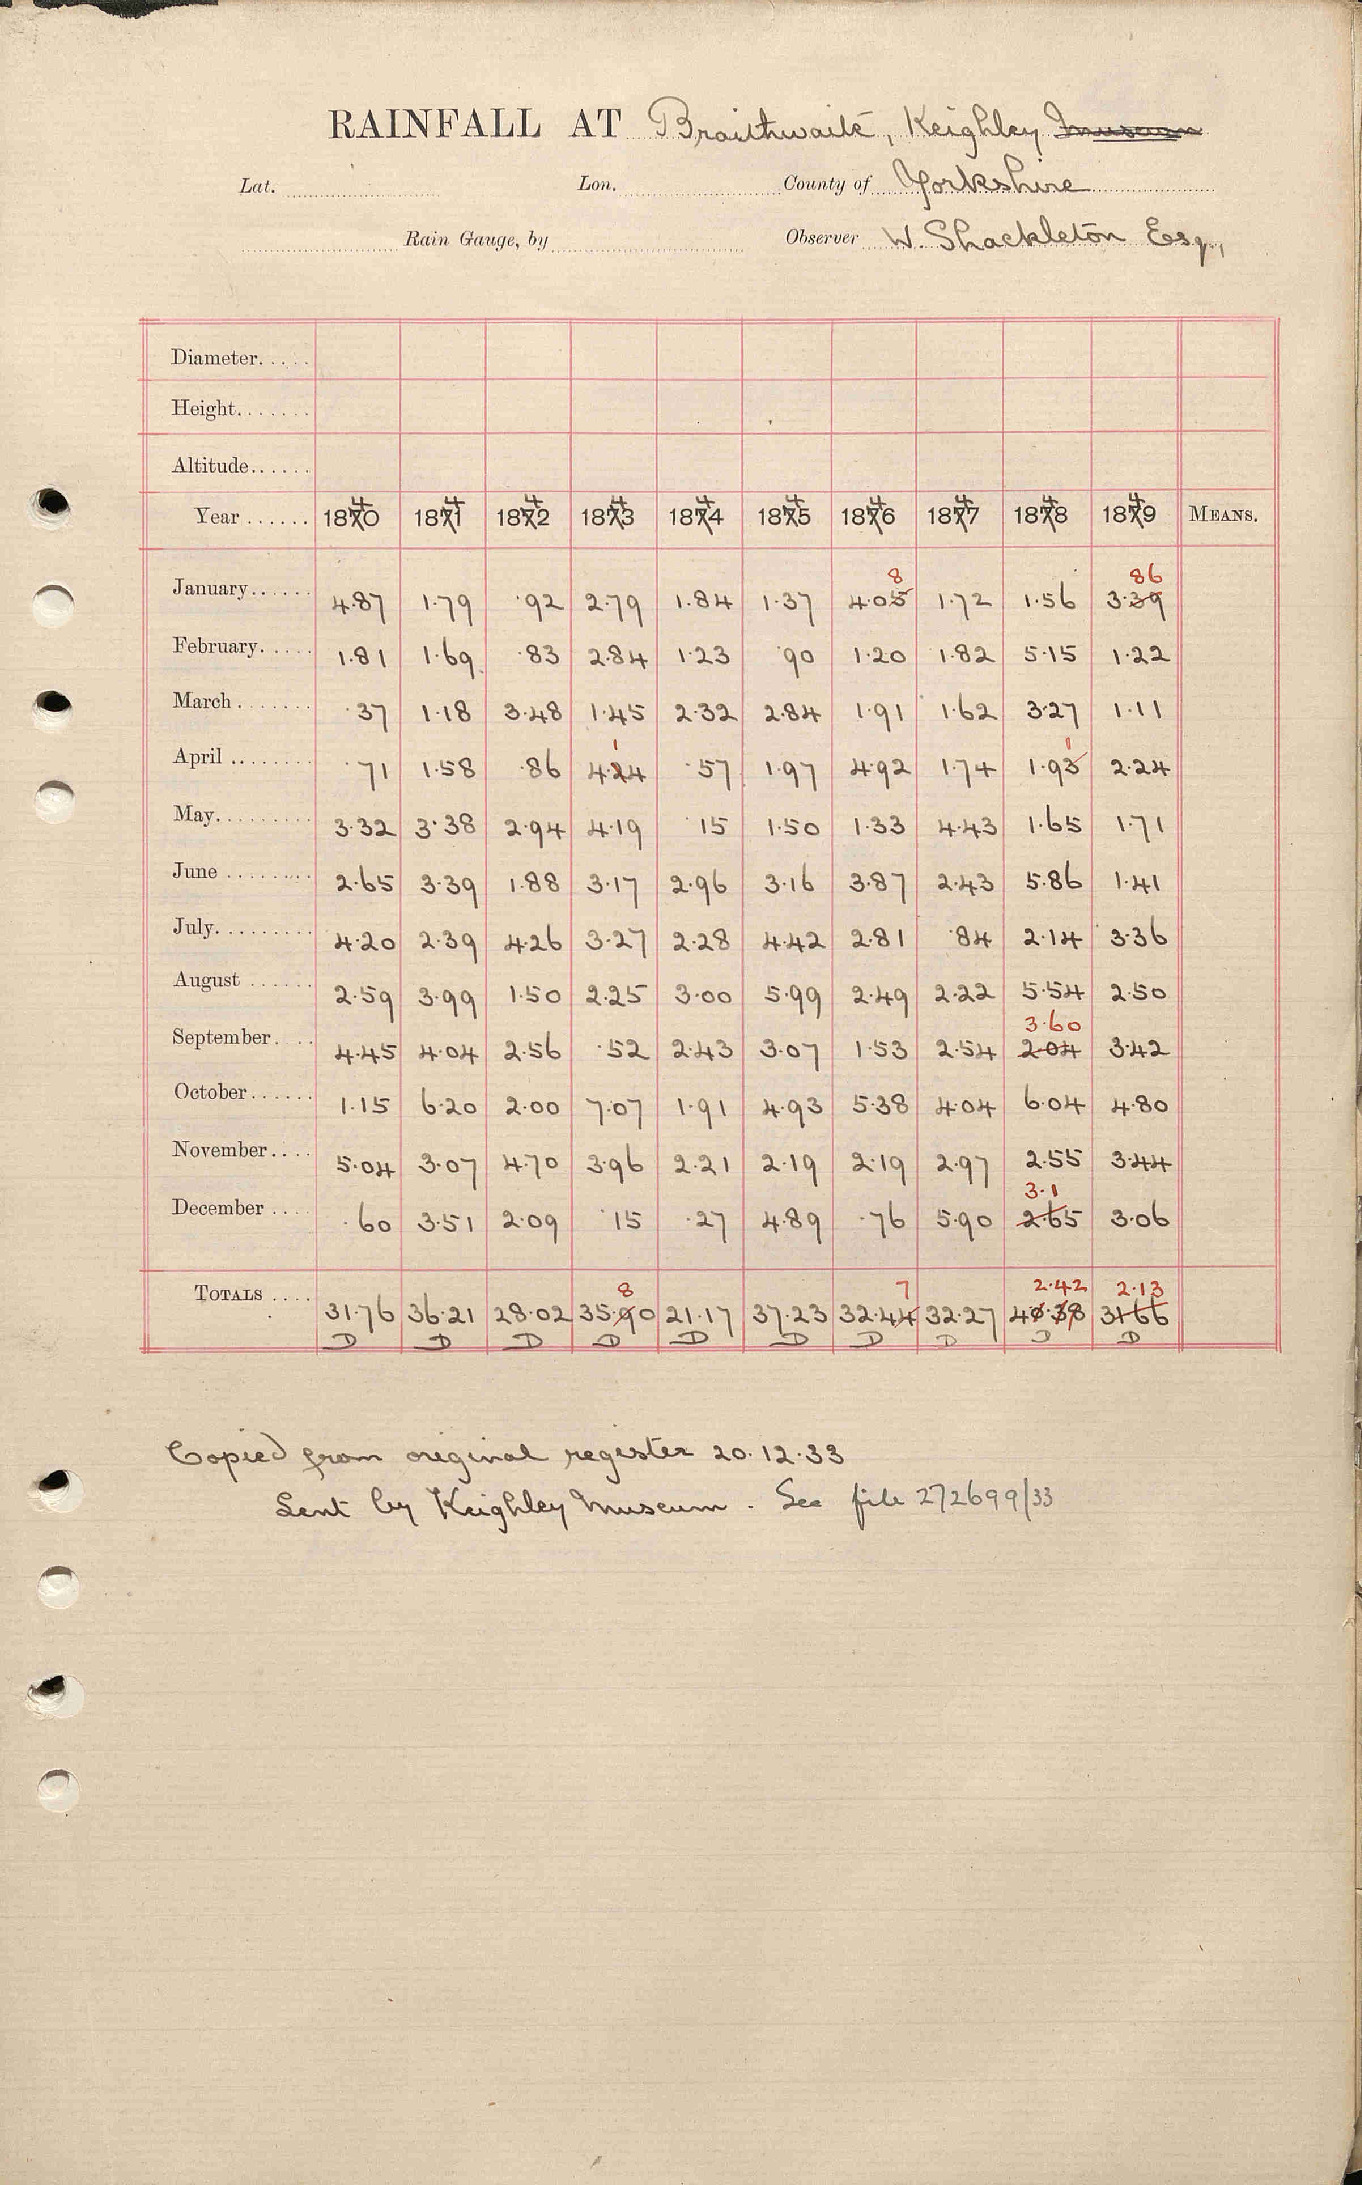 RAINFALL AT Braithwaite, Keighley Museum
Lat. Lon. County of Yorkshire
Rain Gauge, by Observer W. Shackleton Esq.,
Diameter.....
Height.......
Altitude......
Year ...... 1840 1841 1842 1843 1844 1845 1846 1847 1848 1849 MEANS.
8 86
January...... 4.87 1.79 .92 2.79 1.84 1.37 4.05 1.72 1.56 3.39
February..... 1.81 1.69 .83 2.84 1.23 .90 1.20 1.82 5.15 1.22
March ....... .37 1.18 3.48 1.45 2.32 2.84 1.91 1.62 3.27 1.11
1 1
April ........ .71 1.58 .86 4.24 .57 1.97 4.92 1.74 1.93 2.24
May......... 3.32 3.38 2.94 4.19 .15 1.50 1.33 4.43 1.65 1.71
June ........ 2.65 3.39 1.88 3.17 2.96 3.16 3.87 2.43 5.86 1.41
July......... 4.20 2.39 4.26 3.27 2.28 4.42 2.81 .84 2.14 3.36
August ...... 2.59 3.99 1.50 2.25 3.00 5.99 2.49 2.22 5.54 2.50
3.60
September.... 4.45 4.04 2.56 .52 2.43 3.07 1.53 2.54 2.04 3.42
October...... 1.15 6.20 2.00 7.07 1.91 4.93 5.38 4.04 6.04 4.80
November.... 5.04 3.07 4.70 3.96 2.21 2.19 2.19 2.97 2.55 3.44
3.1
December .... .60 3.51 2.09 .15 .27 4.89 .76 5.90 2.65 3.06
8 7 2.42 2.13
TOTALS .... 31.76 36.21 28.02 35.90 21.17 37.23 32.44 32.27 40.38 31.66
D D D D D D D D D D
Copied from original register 20.12.33
Sent by Keighley Museum. See file 272699/33